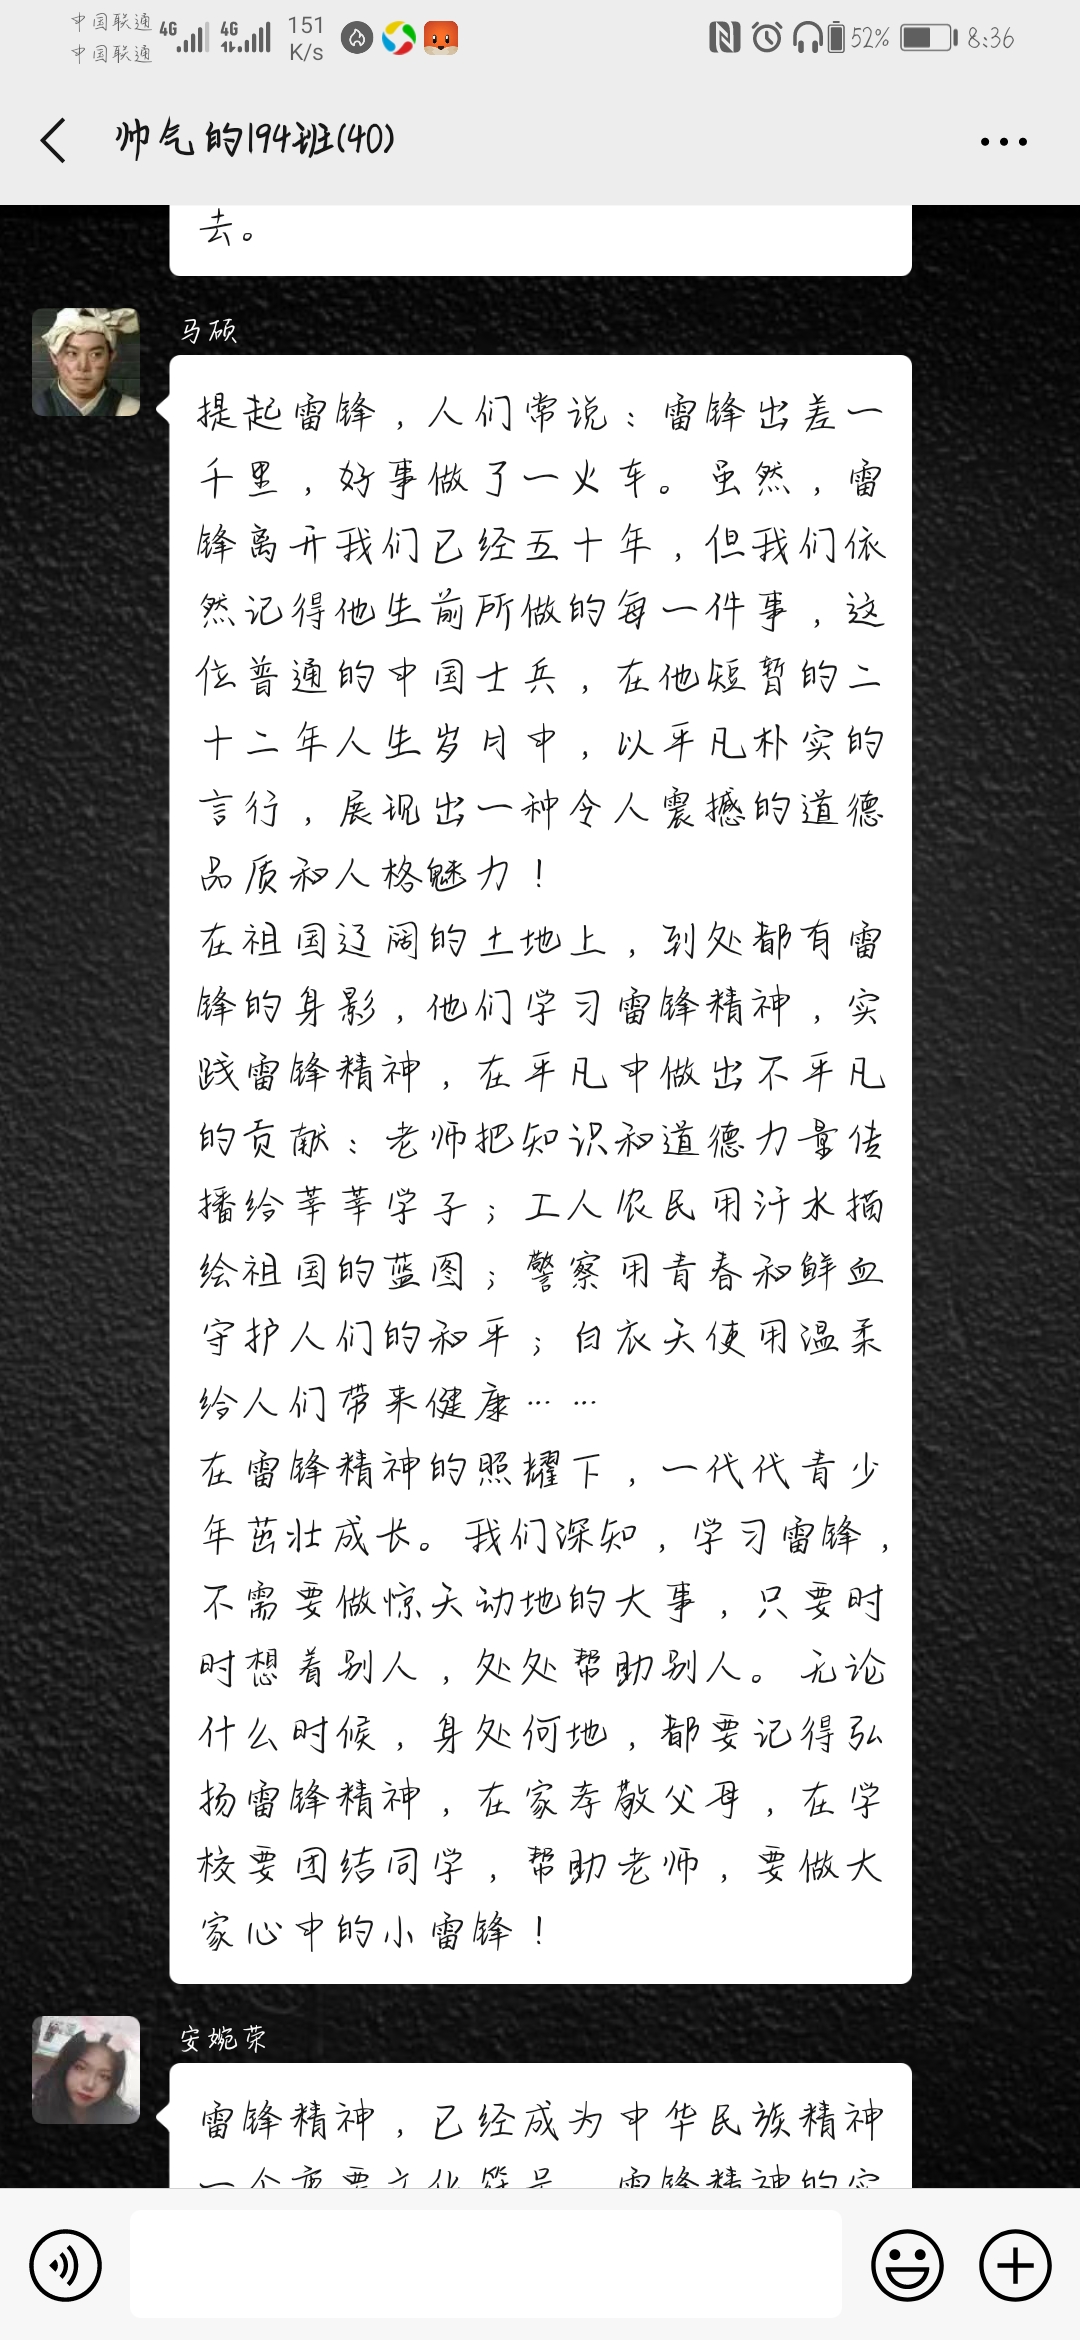 中国联通 4G 4G 151 52% 8:36
中国联通 K/s
帅气的194班(40)
去。
马硕
提起雷锋，人们常说：雷锋出差一
千里，好事做了一火车。虽然，雷
锋离开我们已经五十年，但我们依
然记得他生前所做的每一件事，这
位普通的中国士兵，在他短暂的二
十二年人生岁月中，以平凡朴实的
言行，展现出一种令人震撼的道德
品质和人格魅力！
在祖国辽阔的土地上，到处都有雷
锋的身影，他们学习雷锋精神，实
践雷锋精神，在平凡中做出不平凡
的贡献：老师把知识和道德力量传
播给莘莘学子；工人农民用汗水描
绘祖国的蓝图；警察用青春和鲜血
守护人们的和平；白衣天使用温柔
给人们带来健康……
在雷锋精神的照耀下，一代代青少
年茁壮成长。我们深知，学习雷锋，
不需要做惊天动地的大事，只要时
时想着别人，处处帮助别人。无论
什么时候，身处何地，都要记得弘
扬雷锋精神，在家孝敬父母，在学
校要团结同学，帮助老师，要做大
家心中的小雷锋！
安婉荣
雷锋精神，已经成为中华民族精神
一个重要文化符号。雷锋精神的实